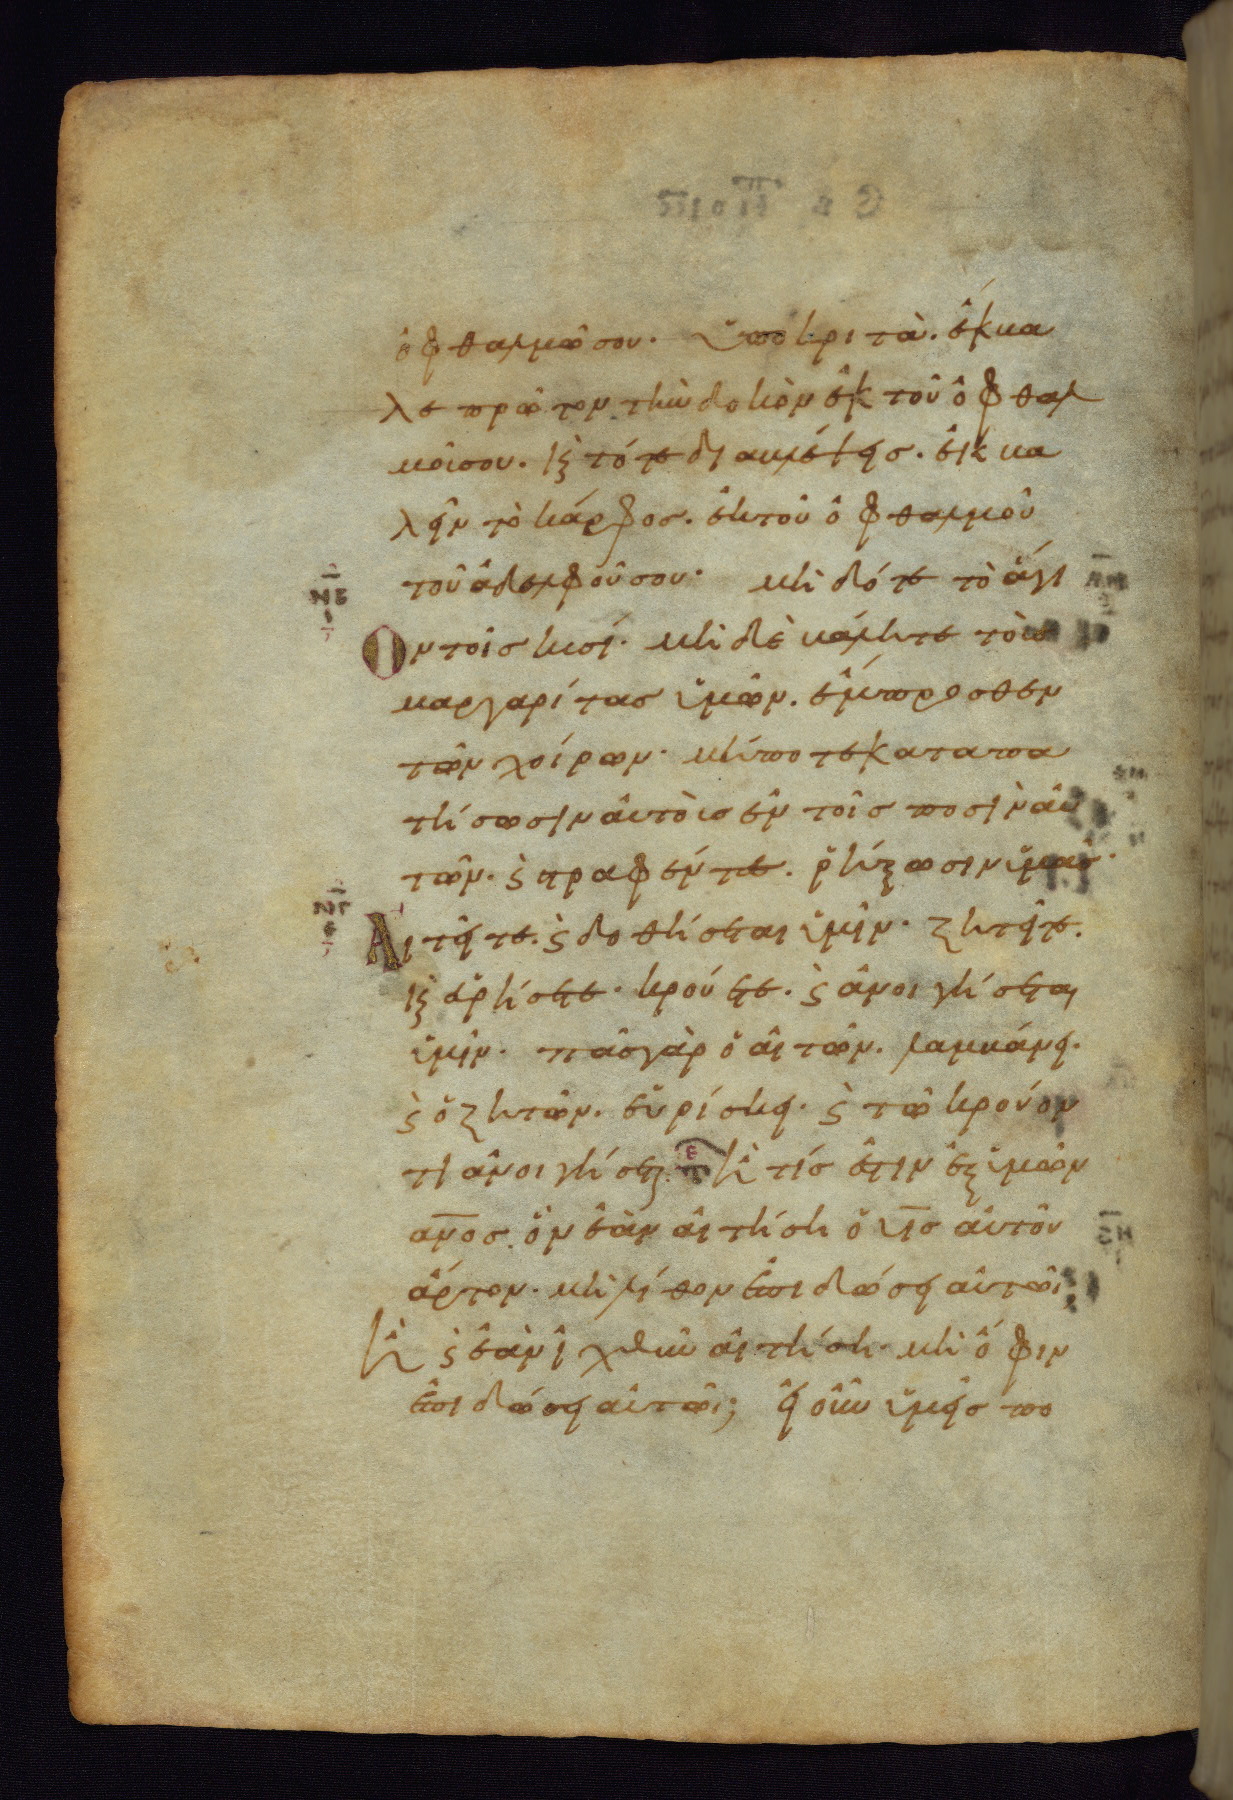 ὀφθαλμῶ σου. ὑποκριτὰ. ἔκβα
λε πρῶτον τὴν δοκὸν ἐκ τοῦ ὀφθαλ
μοῦ σου. καὶ τότε διαβλέψεις. ἐκβα
λεῖν τὸ κάρφος. ἐκ τοῦ ὀφθαλμοῦ
τοῦ ἀδελφοῦ σου. μὴ δότε τὸ ἅγι
ΜΒ
Ον τοῖς κυσί. μὴ δὲ βάλητε τοὺς
μαργαρίτας ὑμῶν. ἔμπροσθεν
τῶν χοίρων. μήποτε καταπα
τήσωσιν αὐτοὺς ἐν τοῖς ποσὶν αὐ
τῶν. ϛ στραφέντες. ῥήξωσιν ὑμᾶς.
ΜΓ
Αἰτεῖτε. ϛ δοθήσεται ὑμῖν. ζητεῖτε.
καὶ εὑρήσετε. κρούετε. ϛ ἀνοιγήσεται
ὑμῖν. πᾶς γὰρ ὁ αἰτῶν. λαμβάνει.
ϛ ὁ ζητῶν. εὑρίσκει. ϛ τῶ κρούον
τι ἀνοιγήσεται. ἢ τίς ἐστιν ἐξ ὑμῶν
ανος. ὃν ἐὰν αἰτήση ὁ υις αὐτοῦ
ἄρτον. μὴ λίθον ἐπιδώσει αὐτῶι;
ἢ ϛ ἐὰν ἰχθὺν αἰτήση. μὴ ὄφιν
ἐπιδώσει αὐτῶι; εἰ οὖν ὑμεῖς πο